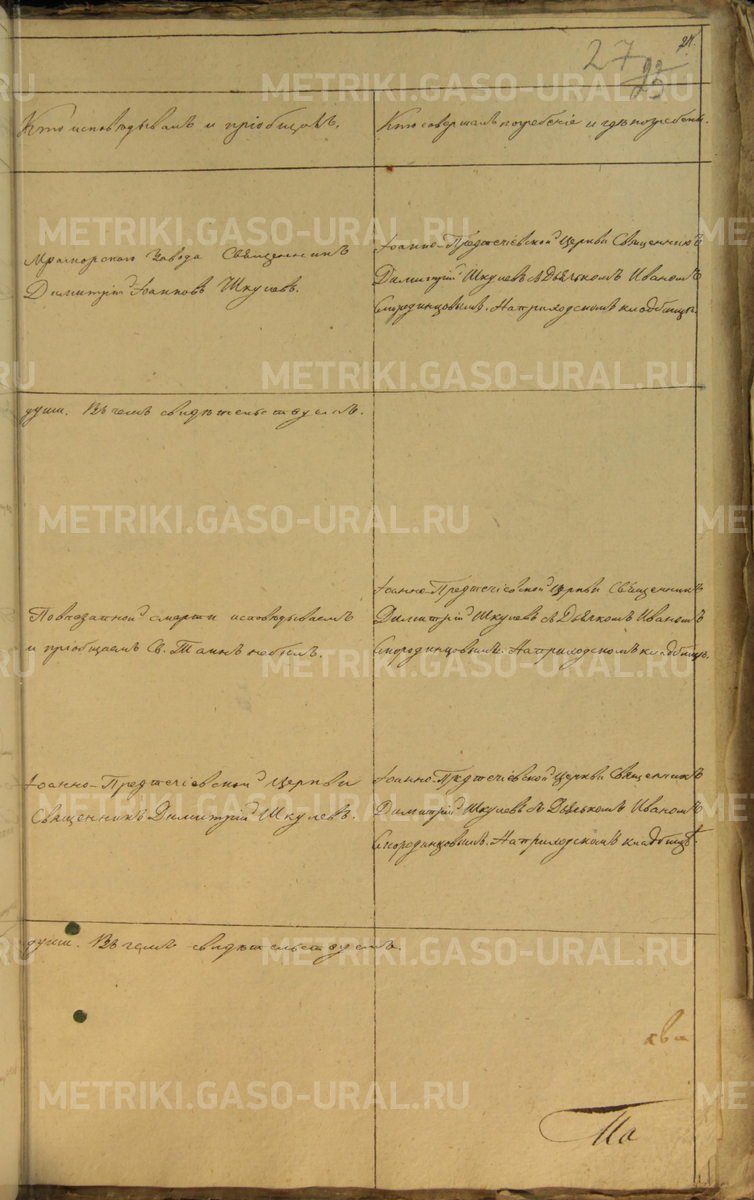 27
23
Кто исповѣдывалъ и пріобщалъ.
Кто совершалъ погребеніе и гдѣ погребены.
Мраморскаго Завода Священникъ
Димитрій Іоанновъ Шкулевъ.
Іоанно-Предтечіевской Церкви Священникъ
Димитрій Шкулевъ съ Дьячкомъ Иваномъ
Смородинцовымъ. На приходскомъ кладбищѣ.
души. Въ чемъ свидѣтельствуемъ.
По внезапной смерти исповѣдываемъ
и пріобщаемъ Св. Таинъ небылъ.
Іоанно-Предтечіевской Церкви Священникъ
Димитрій Шкулевъ съ Дьячкомъ Иваномъ
Смородинцовымъ. На приходскомъ кладбищѣ.
Іоанно-Предтечіевской Церкви
Священникъ Димитрій Шкулевъ.
Іоанно-Предтечіевской Церкви Священникъ
Димитрій Шкулевъ съ Дьячкомъ Иваномъ
Смородинцовымъ. На приходскомъ кладбищѣ.
души. Въ чемъ свидѣтельствуемъ.
Ма
METRIKI.GASO-URAL.RU